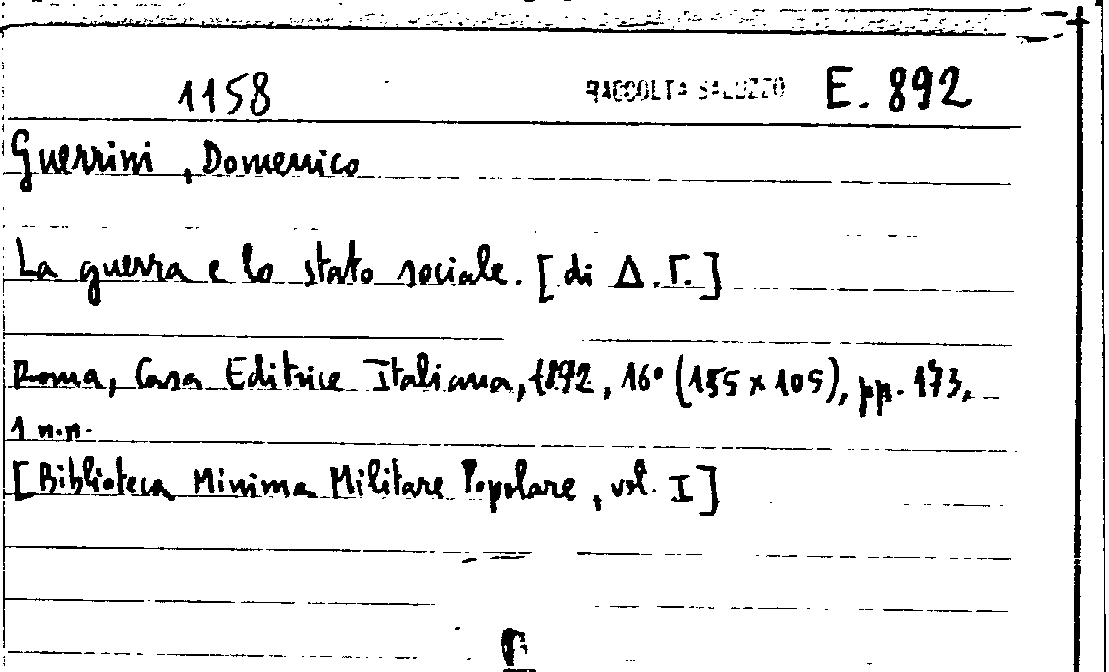 1158 RACCOLTA SALUZZO E. 892
Guerrini, Domenico
La guerra e lo stato sociale. [di Δ.Γ.]
Roma, Casa Editrice Italiana, 1892, 16° (155 x 105), pp. 173,
1 n.n.
[Biblioteca Minima Militare Popolare, vol. I]